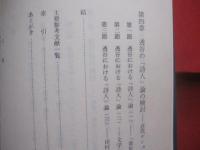 第四章 透谷の「詩人」論の検討
第一節 透谷における「詩人」論(一)
第二節 透谷における「詩人」論(二)
第三節 透谷における「詩人」論(三)
結
主要参考文献一覧
索引
あとがき